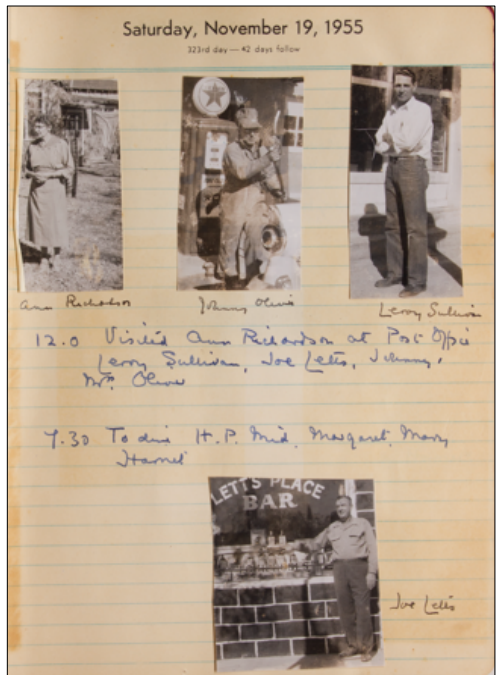 Saturday, November 19, 1955
323rd day — 42 days follow
Ann Richardson
Johnny Oliver
Leroy Sullivan
12.0 Visited Ann Richardson at Post Office
Leroy Sullivan, Joe Letts, Johnny,
Mrs. Oliver
7.30 To dine H.P. Mid, Margaret, Mary
Harriet
LETT'S PLACE
BAR
Joe Letts